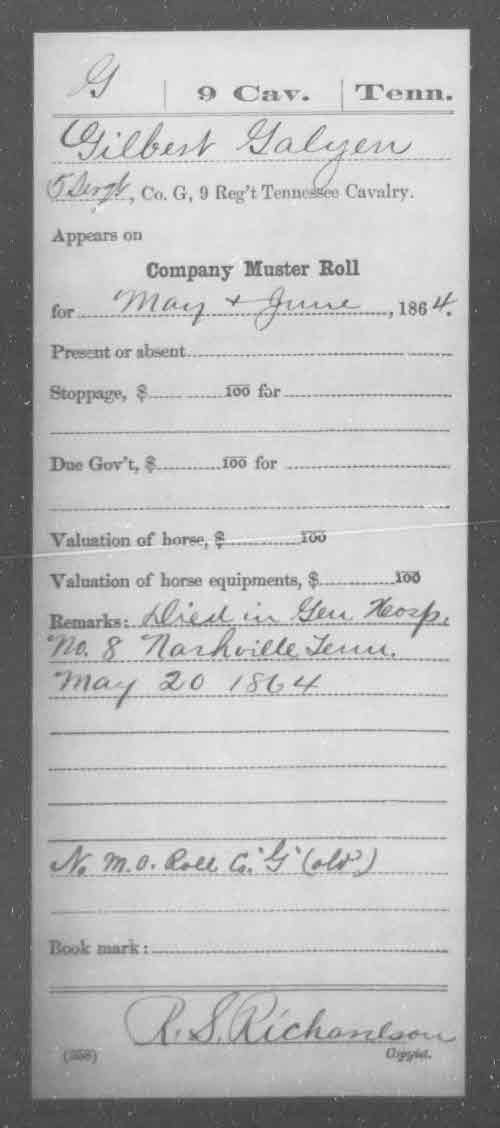 G | 9 Cav. | Tenn.
Gilbert Galyen
5 Sergt, Co. G, 9 Reg't Tennessee Cavalry.
Appears on
Company Muster Roll
for May + June, 1864.
Present or absent
Stoppage, $ 100 for
Due Gov't, $ 100 for
Valuation of horse, $ 100
Valuation of horse equipments, $ 100
Remarks: Died in Gen Hosp.
No. 8 Nashville Tenn.
May 20 1864
No M.O. Roll Co. "G" (old)
Book mark:
R. S. Richardson
(358) Copyist.